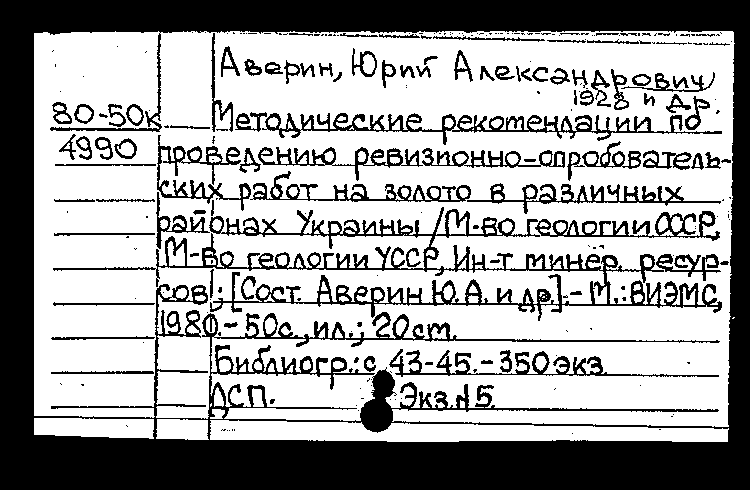 Аверин, Юрий Александрович
1928 и др.
80-50к Методические рекомендации по
4990 проведению ревизионно-опробователь-
ских работ на золото в различных
районах Украины /М-во геологии СССР,
М-во геологии УССР, Ин-т минер. ресур-
сов; [Сост. Аверин Ю.А. и др.].- М.: ВИЭМС,
1980.- 50с., ил.; 20 см.
Библиогр.: с 43-45.- 350 экз.
ДСП. Экз.№5.